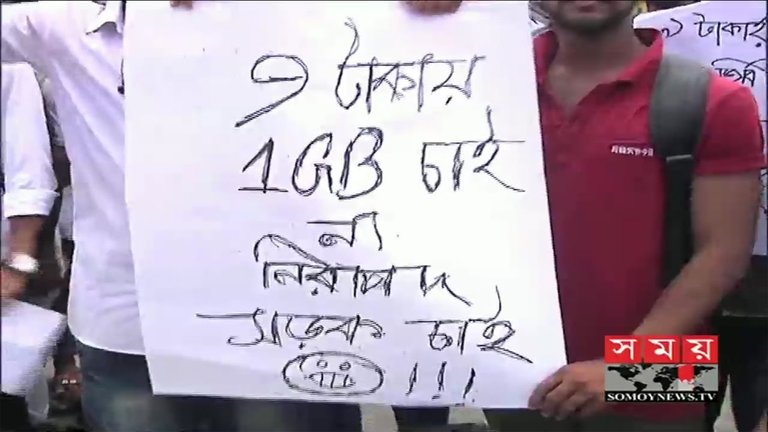 ৯ টাকায়
1GB চাই
না
নিরাপদ
সড়ক চাই
!!!
৯ টাকায়
সময়
SOMOYNEWS.TV